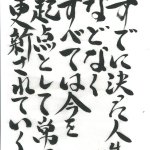 すでに決った人生
などなく
すべては今を
起点として常に
更新されていく